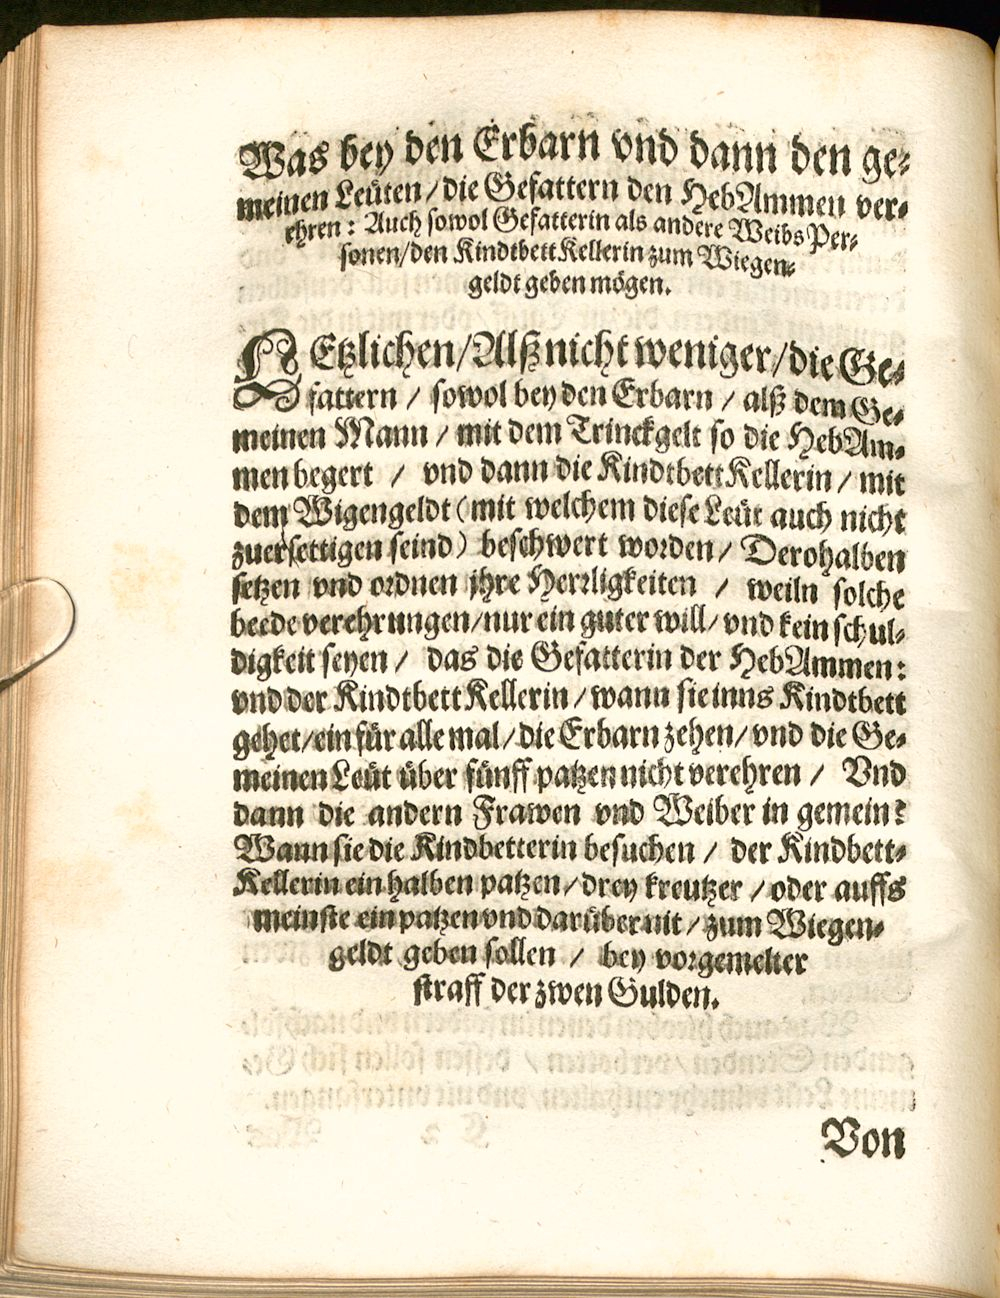 Was bey den Erbarn vnd dann den ge-
meinen Leüten / die Gefattern den HebAmmen ver-
ehren: Auch sowol Gefatterin als andere Weibs Per-
sonen / den KindtbettKellerin zum Wiegen-
geldt geben mögen.
LEtzlichen / Alß nicht weniger / die Ge-
fattern / sowol bey den Erbarn / alß dem Ge-
meinen Mann / mit dem Trinckgelt so die HebAm-
men begert / vnd dann die KindtbettKellerin / mit
dem Wigengeldt (mit welchem diese Leüt auch nicht
zuersettigen seind) beschwert worden / Derohalben
setzen vnd ordnen jhre Herrligkeiten / weiln solche
beede verehrungen / nur ein guter will / vnd kein schul-
digkeit seyen / das die Gefatterin der HebAmmen:
vnd der KindtbettKellerin / wann sie inns Kindtbett
gehet / ein für alle mal / die Erbarn zehen / vnd die Ge-
meinen Leüt über fünff patzen nicht verehren / Vnd
dann die andern Frawen vnd Weiber in gemein:
Wann sie die Kindbetterin besuchen / der Kindbett-
Kellerin ein halben patzen / drey kreutzer / oder auffs
meinste ein patzen vnd darüber nit / zum Wiegen-
geldt geben sollen / bey vorgemelter
straff der zwen Gulden.
Von